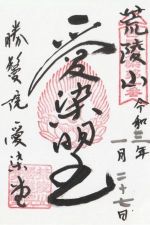 荒陵山
令和三年
一月二十七日
愛染明王
勝鬘院
愛染堂